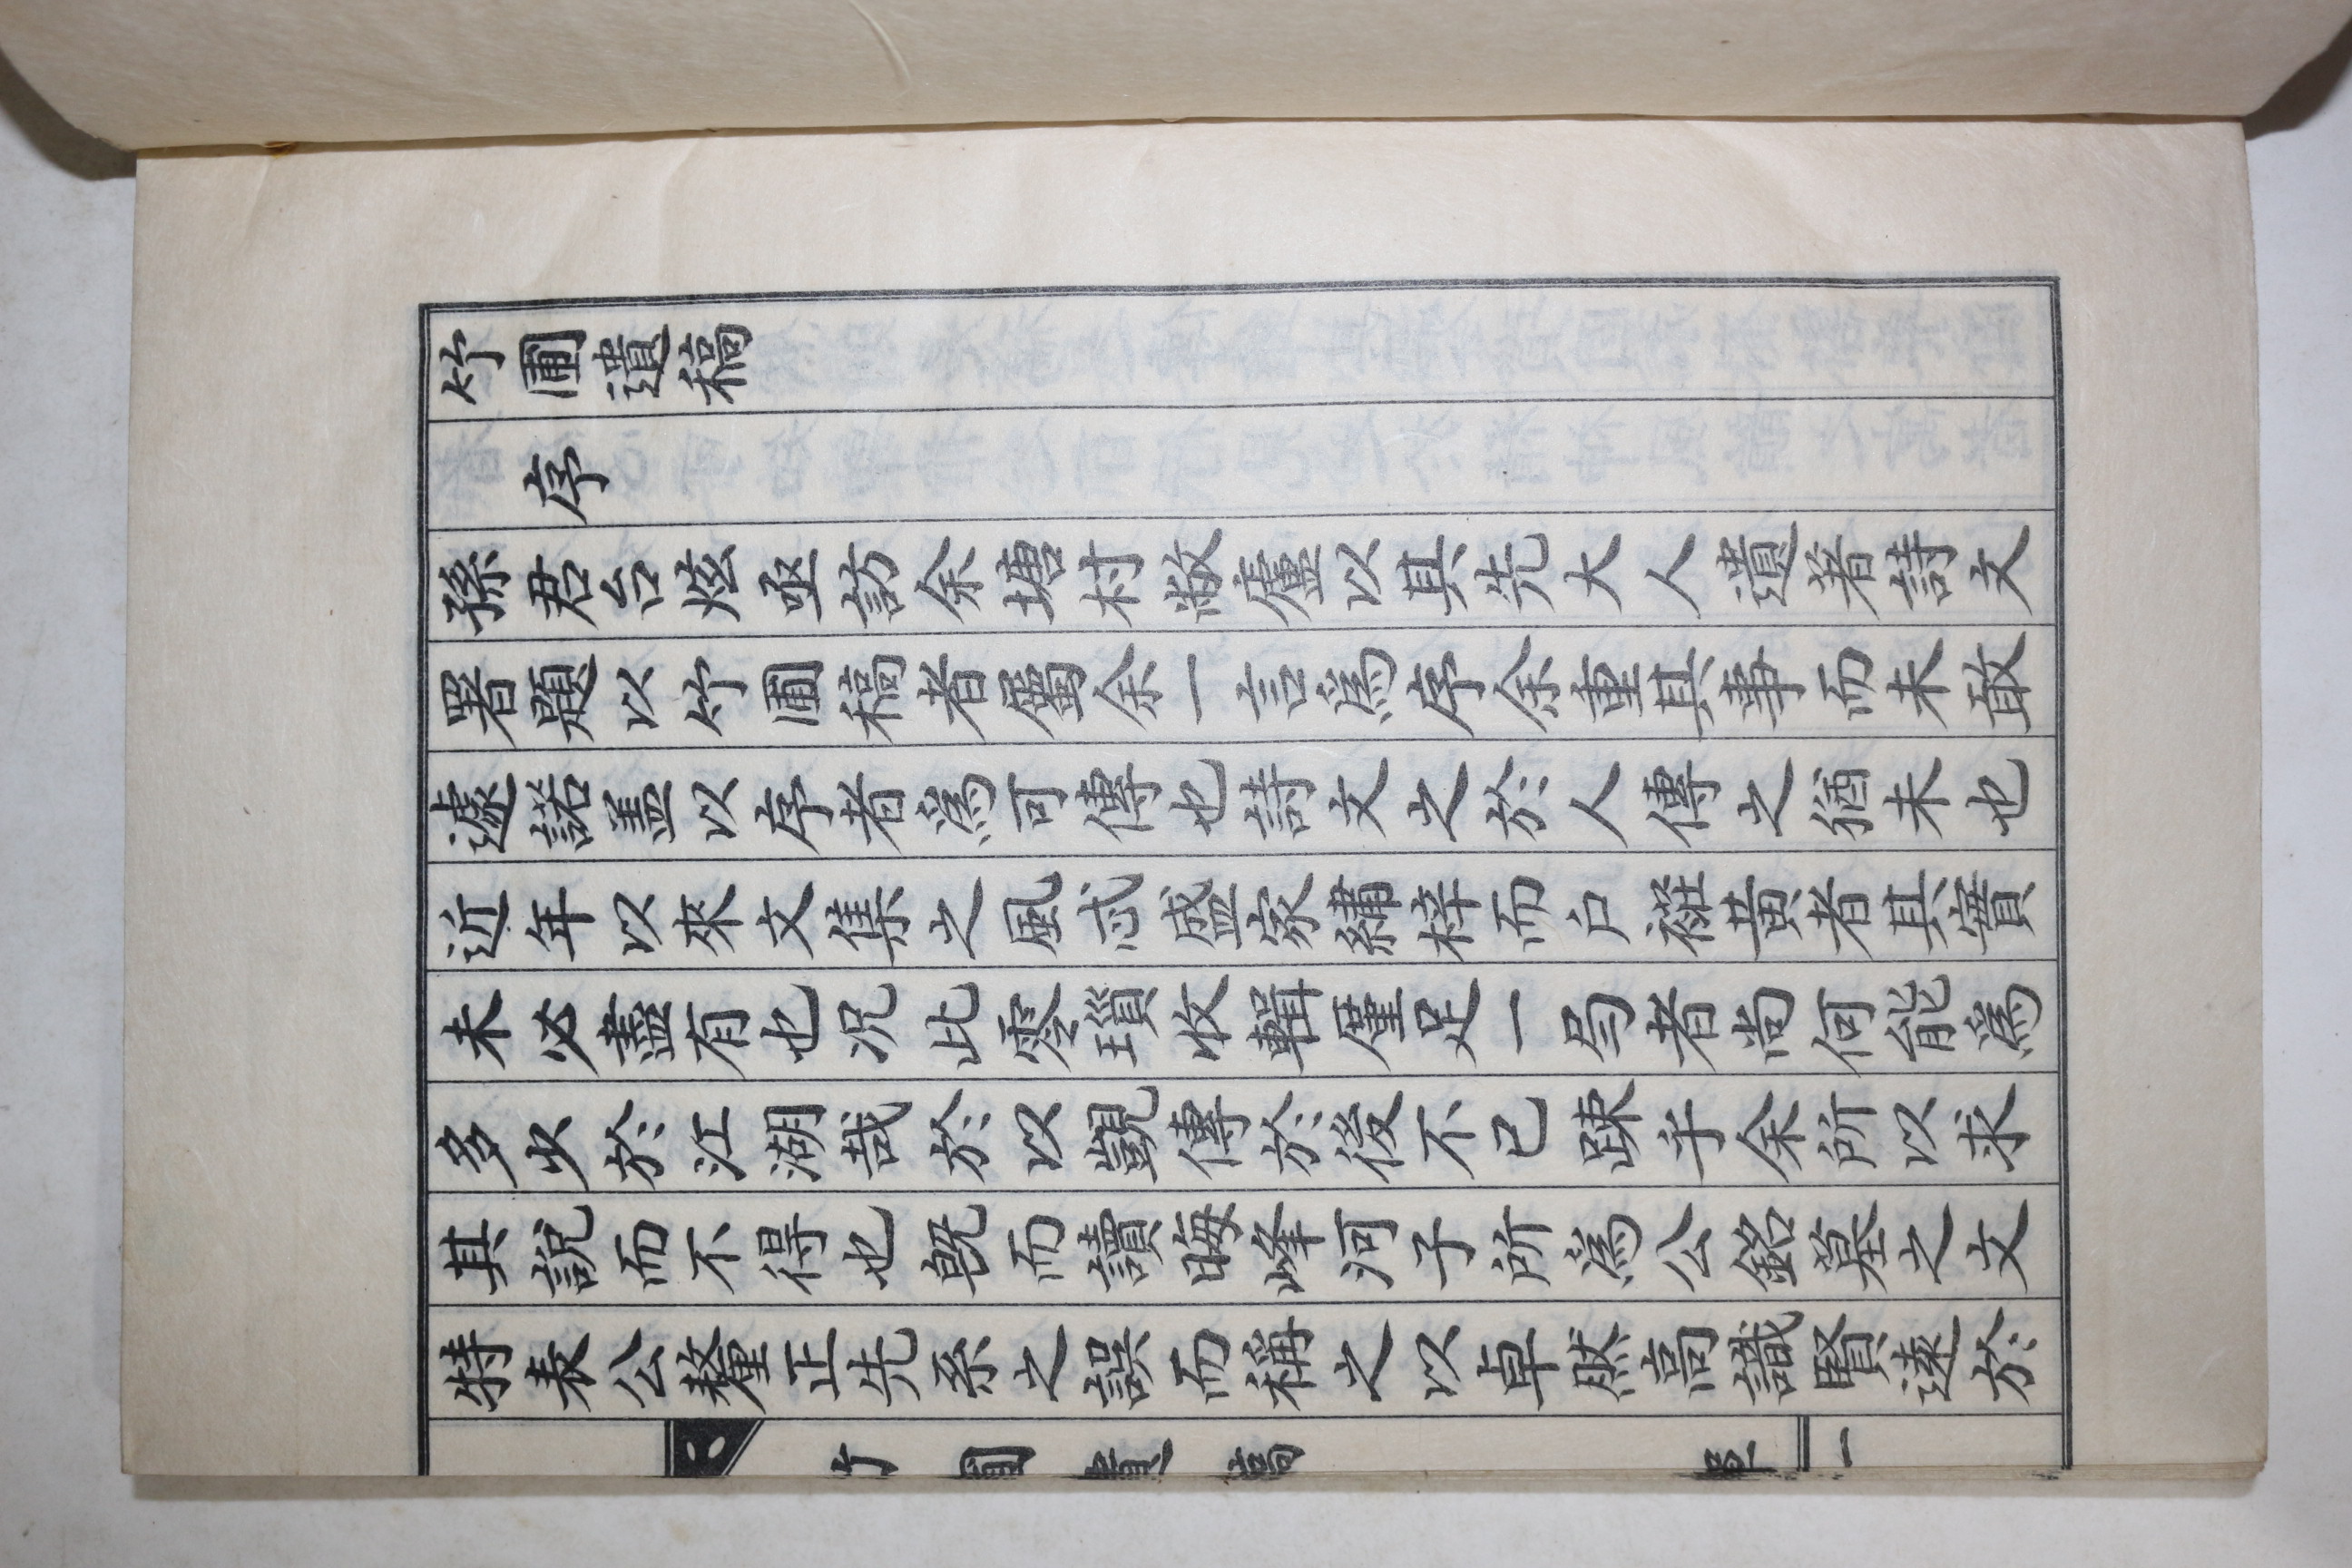 竹圃遺稿
序
孫君台炫亟訪余塘村敝廬以其先大人遺著詩文
署題以竹圃稿者屬余一言爲序余重其事而未敢
遽諾盖以序者爲可傳也詩文之於人傳之猶未也
近年以來文集之風忒盛家繡梓而户黃者其實
未必盡有也况此零瑣收輯僅足一弓者尚何能爲
多少於江湖哉於以覬傳於後不已踈乎余所以求
其說而不得也旣而讀晦峰河子所爲公銘墓之文
特表公釐正先系之誤而稱之以卓然高識賢遠於
竹圃遺稿 一